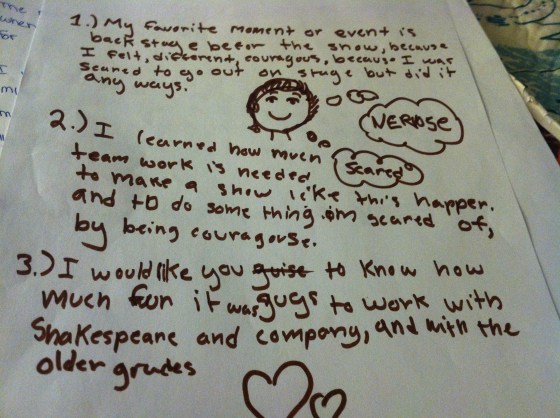 1.) My favorite moment or event is
back stage befor the show, because
I felt, different, couragous, because I was
scared to go out on stage but did it
any ways.
NERVOSE
2.) I learned how much
team work is needed
scared
to make a show like this happen.
and to do some thing im scared of,
by being couragouse.
3.) I would like you guise to know how
much fun it was guys to work with
Shakespeare and company, and with the
older grades